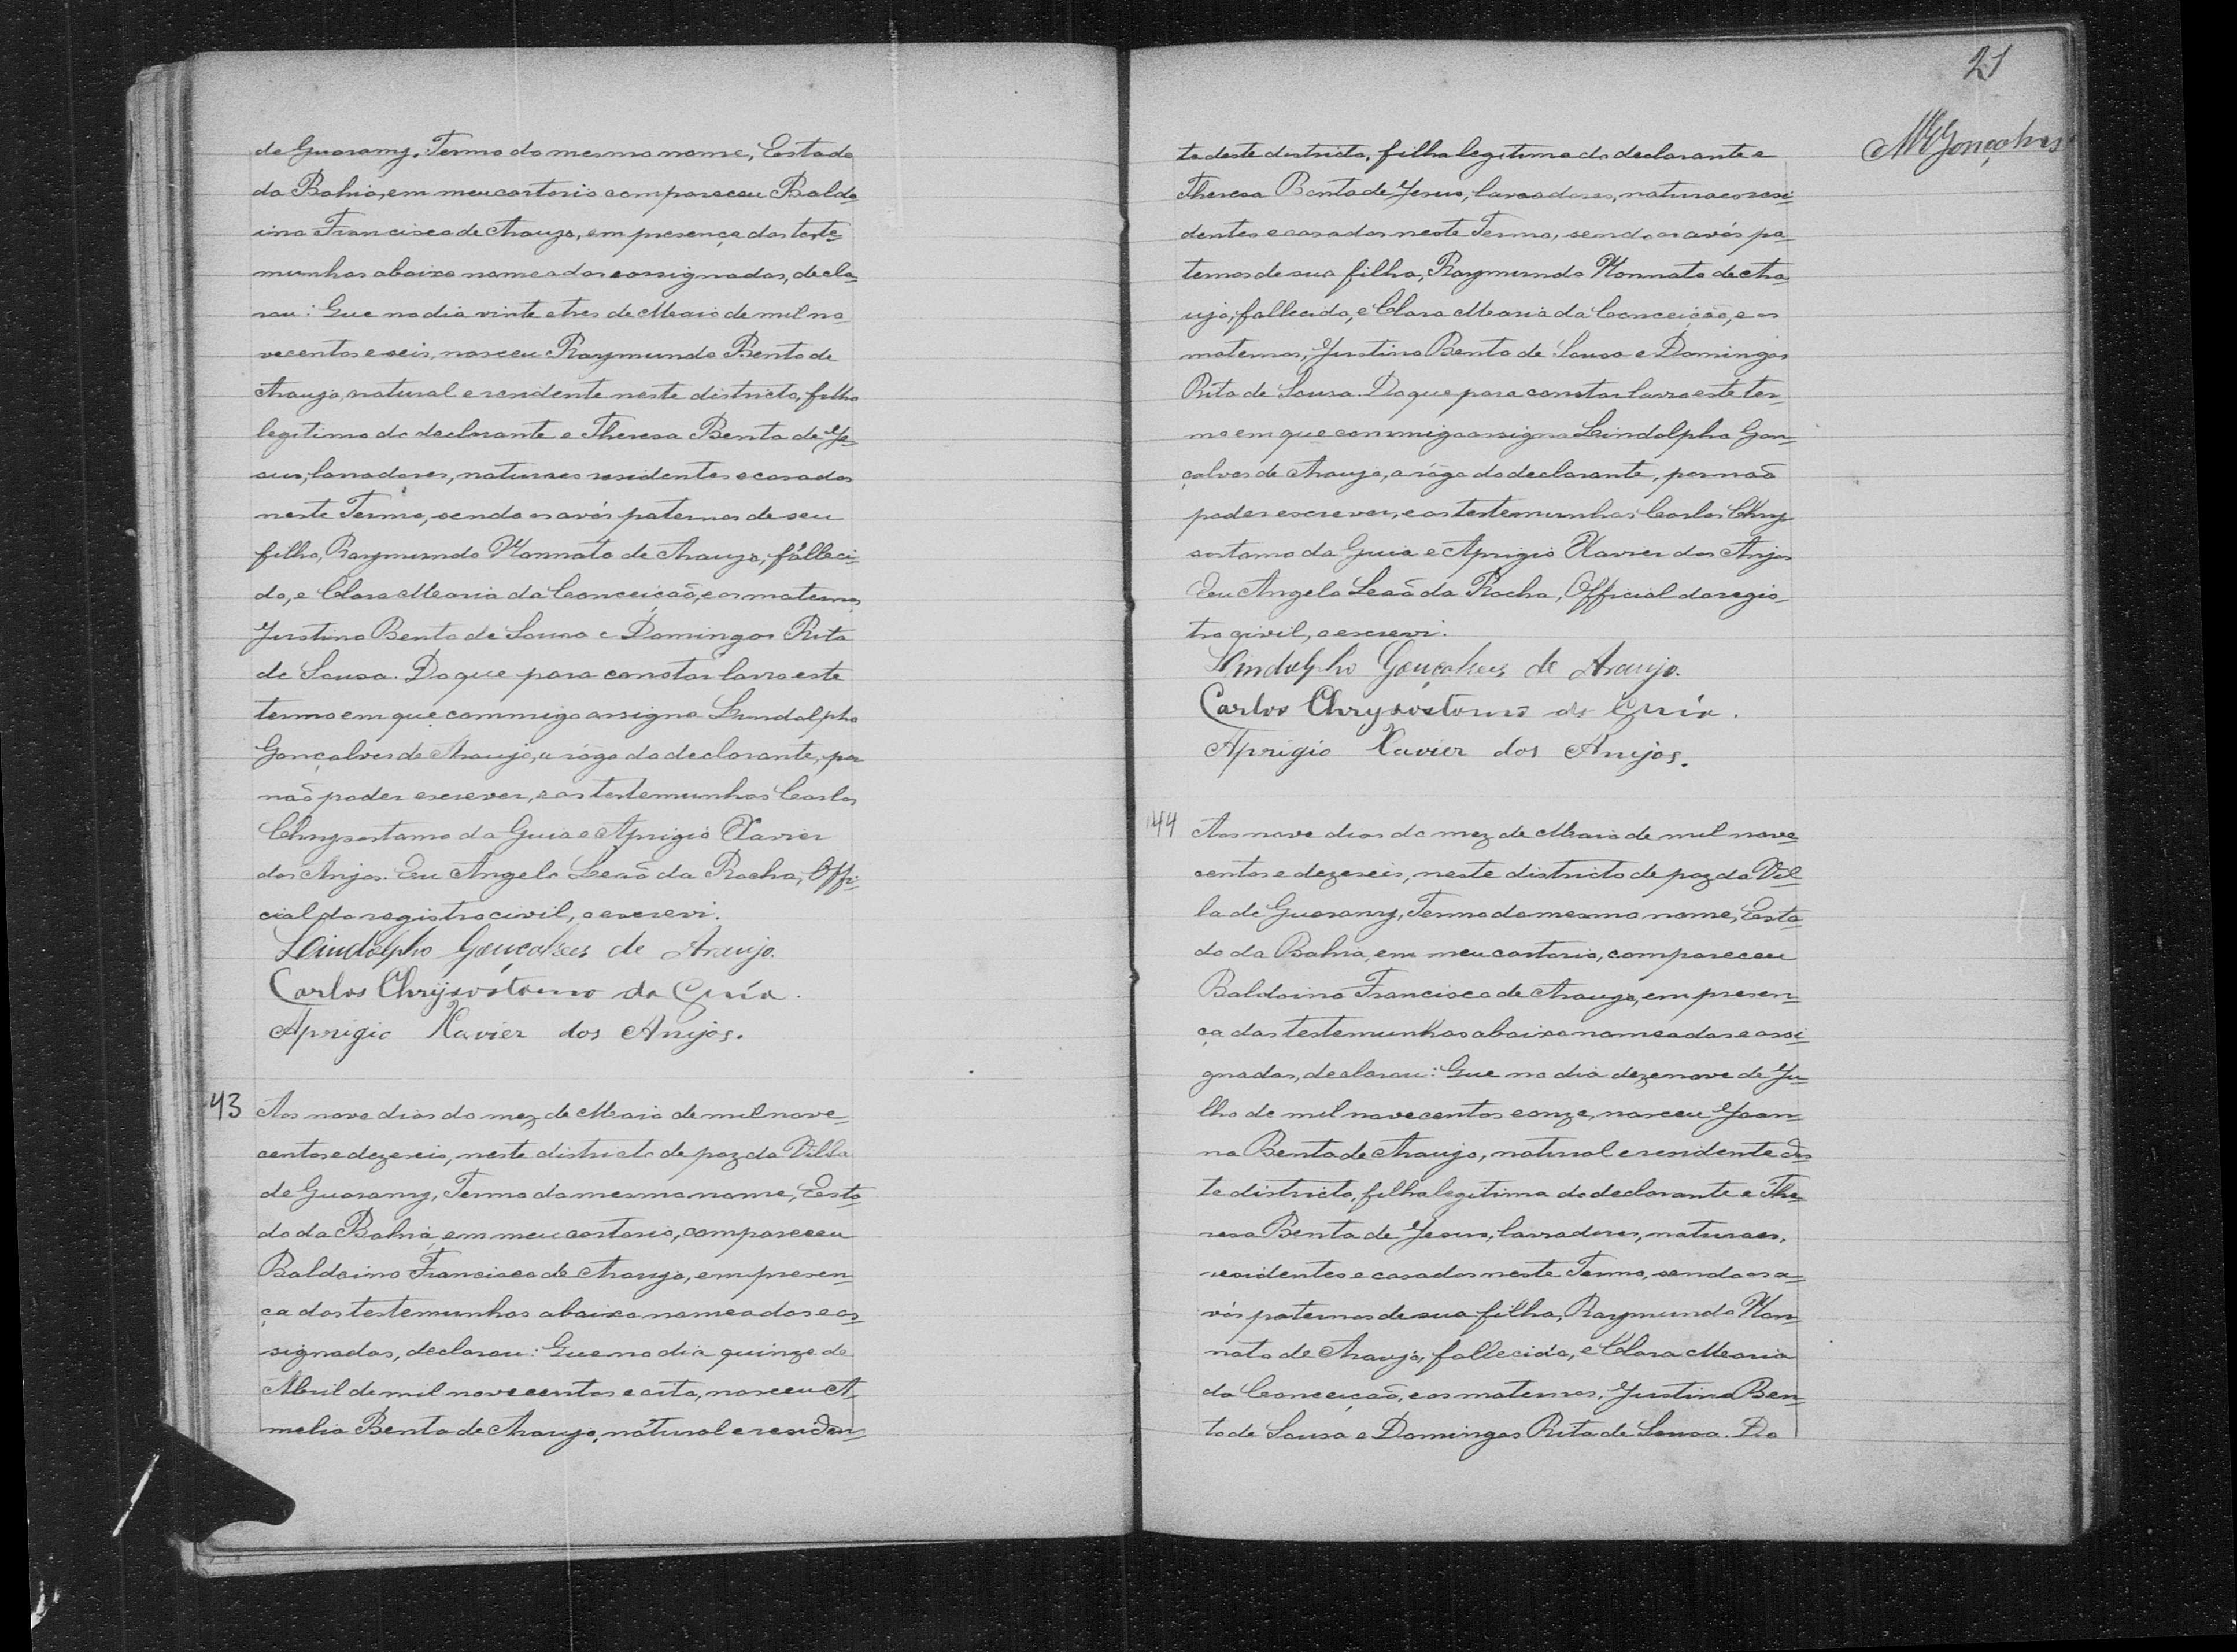 de Guarany, Termo do mesmo nome, Estado
da Bahia, em meu cartorio compareceu Baldo
ino Francisco de Araujo, em presença das teste-
munhas abaixo nomeadas e assignadas, decla-
rou: Que no dia vinte e tres de Maio de mil no
vecentos e seis, nasceu Raymundo Bento de
Araujo, natural e residente neste districto, filho
legitimo do declarante e Theresa Benta de Je-
sus, lavradores, naturaes residentes e casados
neste Termo, sendo os avós paternos de seu
filho, Raymundo Nonnato de Araujo, falleci-
do, e Clara Maria da Conceição, e os maternos
Justino Bento de Sousa e Domingas Rita
de Sousa. Do que para constar lavro este
termo em que commigo assigna Lindolpho
Gonçalves de Araujo, a rógo do declarante, por
não poder escrever, e as testemunhas Carlos
Chrysostomo da Guia e Aprigio Xavier
dos Anjos. Eu Angelo Leão da Rocha, Offi-
cial do registro civil, o escrevi.
Lindolpho Gonçalves de Araujo.
Carlos Chrysóstomo da Guía.
Aprigio Xavier dos Anjos.
43 Aos nove dias do mez de Maio de mil nove-
centos e dezeseis, neste districto de paz da Villa
de Guarany, Termo do mesmo nome, Esta-
do da Bahia, em meu cartorio, compareceu
Baldoino Francisco de Araujo, em presen-
ça das testemunhas abaixo nomeadas e as-
signadas, declarou: Que no dia quinze de
Abril de mil novecentos e oito, nasceu A-
melia Benta de Araujo, natural e residen-
21
MGonçalves
te deste districto, filha legitima do declarante e
Theresa Benta de Jesus, lavradores, naturaes resi-
dentes e casados neste Termo, sendo os avós pa-
ternos de sua filha, Raymundo Nonnato de Ara-
ujo, fallecido, e Clara Maria da Conceição, e os
maternos, Justino Bento de Sousa e Domingas
Rita de Sousa. Do que para constar lavro este ter-
mo em que commigo assigna Lindolpho Gon-
çalves de Araujo, a rógo do declarante, por não
poder escrever, e as testemunhas Carlos Chry-
sostomo da Guia e Aprigio Xavier dos Anjos
Eu Angelo Leão da Rocha, Official do regis-
tro civil, o escrevi.
Lindolpho Gonçalves de Araujo.
Carlos Chrysostomo da Guía.
Aprigio Xavier dos Anjos.
44 Aos nove dias do mez de Maio de mil nove-
centos e dezeseis, neste districto de paz da Vil-
la de Guarany, Termo do mesmo nome, Esta-
do da Bahia, em meu cartorio, compareceu
Baldoino Francisco de Araujo, em presen-
ça das testemunhas abaixo nomeadas e assi-
gnadas, declarou: Que no dia dezenove de Ju-
lho de mil novecentos e onze, nasceu Joan-
na Benta de Araujo, natural e residente des-
te districto, filha legitima do declarante e The-
resa Benta de Jesus, lavradores, naturaes,
residentes e casados neste Termo, sendo os a-
vós paternos de sua filha, Raymundo Non-
nato de Araujo, fallecido, e Clara Maria
da Conceição, e os maternos, Justino Ben-
to de Sousa e Domingas Rita de Sousa. Do